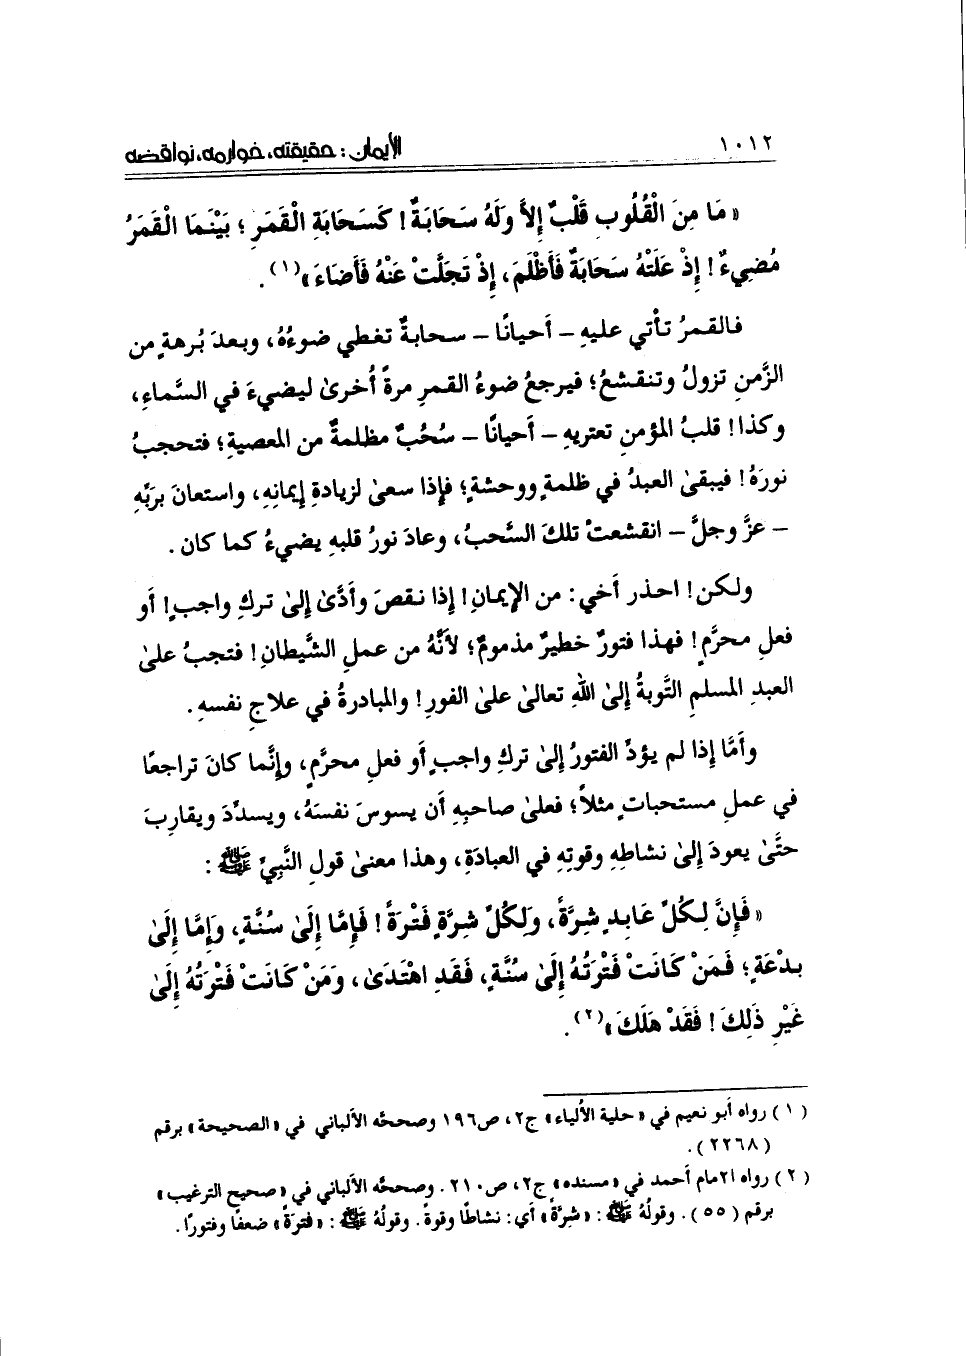 ١٠١٢
الإيمان: حقيقته، خوارمه، نواقضه
« مَا مِنَ الْقُلُوبِ قَلْبٌ إِلاَّ وَلَهُ سَحَابَةٌ! كَسَحَابَةِ الْقَمَرِ؛ بَيْنَمَا الْقَمَرُ
مُضِيءٌ! إِذْ عَلَتْهُ سَحَابَةٌ فَأَظْلَمَ، إِذْ تَجَلَّتْ عَنْهُ فَأَضَاءَ»(١).
فالقمرُ تأتي عليهِ – أحيانًا – سحابةٌ تغطي ضوءُهُ، وبعدَ بُرهةٍ من
الزَّمنِ تزولُ وتنقشعُ؛ فيرجعُ ضوءُ القمرِ مرةً أُخرىٰ ليضيءَ في السَّماءِ،
وكذا! قلبُ المؤمنِ تعتريهِ – أحيانًا – سُحُبٌ مظلمةٌ من المعصيةِ؛ فتحجبُ
نورَهُ! فيبقىٰ العبدُ في ظلمةٍ ووحشةٍ؛ فإذا سعىٰ لزيادةِ إيمانِهِ، واستعانَ بربِّهِ
– عزَّ وجلَّ – انقشعتْ تلكَ السَّحبُ، وعادَ نورُ قلبهِ يضيءُ كما كان.
ولكن! احذر أخي: من الإيمانِ! إذا نقصَ وأدَّىٰ إلىٰ تركِ واجبٍ! أو
فعلِ محرَّمٍ! فهذا فتورٌ خطيرٌ مذمومٌ؛ لأنَّهُ من عملِ الشَّيطانِ! فتجبُ علىٰ
العبدِ المسلمِ التَّوبةُ إلىٰ اللهِ تعالىٰ علىٰ الفورِ! والمبادرةُ في علاجِ نفسهِ.
وأمَّا إذا لم يؤدِّ الفتورُ إلىٰ تركِ واجبٍ أو فعلِ محرَّمٍ، وإنَّما كانَ تراجعًا
في عملِ مستحباتٍ مثلاً؛ فعلىٰ صاحبِهِ أن يسوسَ نفسَهُ، ويسدِّدَ ويقاربَ
حتَّىٰ يعودَ إلىٰ نشاطِهِ وقوتِهِ في العبادَةِ، وهذا معنىٰ قولِ النَّبيِّ ﷺ:
« فَإِنَّ لِكُلِّ عَابِدٍ شِرَّةً، وَلِكُلِّ شِرَّةٍ فَتْرَةً! فَإِمَّا إِلَىٰ سُنَّةٍ، وَإِمَّا إِلَىٰ
بِدْعَةٍ؛ فَمَنْ كَانَتْ فَتْرَتُهُ إِلَىٰ سُنَّةٍ، فَقَدِ اهْتَدَىٰ، وَمَنْ كَانَتْ فَتْرَتُهُ إِلَىٰ
غَيْرِ ذَلِكَ! فَقَدْ هَلَكَ»(٢).
(١) رواه أبو نعيم في «حلية الألياء» ج٢، ص١٩٦ وصححَّه الألباني في «الصحيحة» برقم
(٢٢٦٨).
(٢) رواه ا٢مام أحمد في «مسنده» ج٢، ص٢١٠. وصححَّه الألباني في «صحيح الترغيب»
برقم (٥٥). وقولُهُ ﷺ: «شِرَّةً» أي: نشاطًا وقوةً. وقولُهُ ﷺ: «فترَةً» ضعفًا وفتورًا.